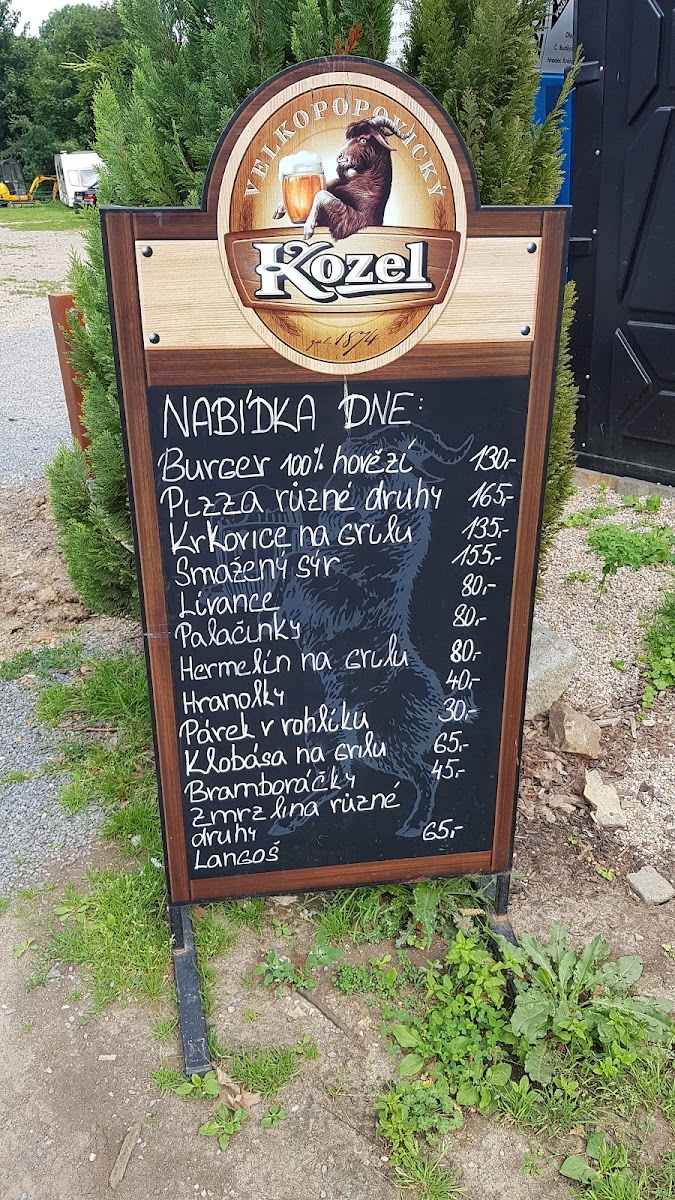 VELKOPOPOVICKÝ
Kozel
1874
NABÍDKA DNE:
Burger 100% hovězí 130,-
Pizza různé druhy 165,-
Krkovice na Grilu 135,-
Smažený sýr 155,-
Lívance 80,-
Palačinky 80,-
Hermelín na Grilu 80,-
Hranolky 40,-
Párek v rohlíku 30,-
Klobása na Grilu 65,-
Bramboráčky 45,-
Zmrzlina různé
druhy
Langoš 65,-